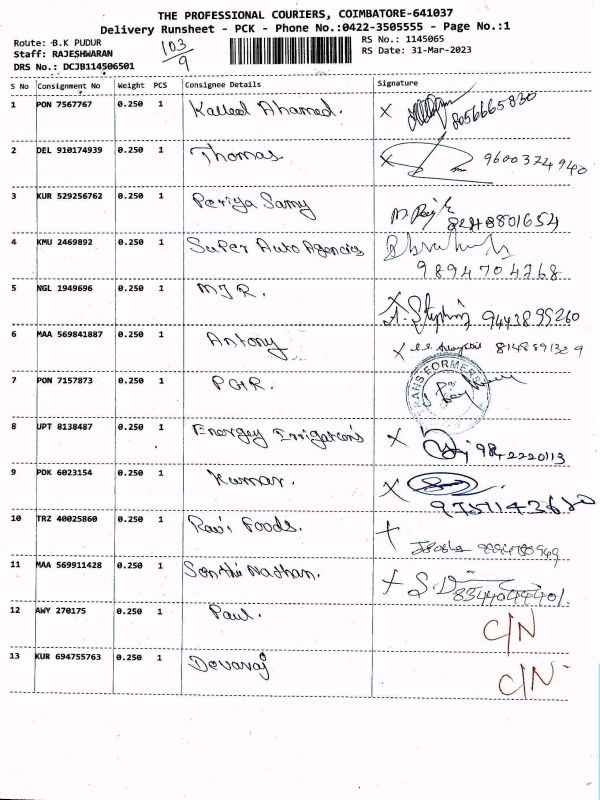 THE PROFESSIONAL COURIERS, COIMBATORE-641037
Delivery Runsheet - PCK - Phone No.:0422-3505555 - Page No.:1
Route: B.K PUDUR
Staff: RAJESHWARAN
DRS No.: DCJB114506501
103/9
RS No.: 1145065
RS Date: 31-Mar-2023
S No Consignment No Weight PCS Consignee Details Signature
1 PON 7567767 0.250 1 Kalleed Ahamed. X 8056665830
2 DEL 910174939 0.250 1 Thomas X 9600374940
3 KUR 529256762 0.250 1 Periya Samy
4 KMU 2469892 0.250 1 Super Auto Agencies
9894704268
5 NGL 1949696 0.250 1 MJR. X 9443899260
6 MAA 569841887 0.250 1 Antony X
7 PON 7157873 0.250 1 PGR. TRANSFORMERS
8 UPT 8138487 0.250 1 Energey Irrigation's X
9 PDK 6023154 0.250 1 Kumar. X
10 TRZ 40025860 0.250 1 Ravi Foods.
11 MAA 569911428 0.250 1 Senthil Nathan. 8344044401.
12 AWY 270175 0.250 1 Paul. C/N
13 KUR 694755763 0.250 1 Devaraj C/N